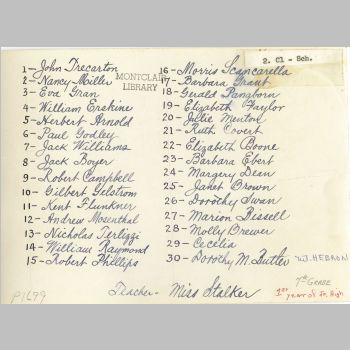 2. Cl - Sch.
MONTCLAIR
LIBRARY
1 - John Trecarton
2 - Nancy Miller
3 - Eva Gran
4 - William Erskine
5 - Herbert Arnold
6 - Paul Godley
7 - Jack Williams
8 - Jack Boyer
9 - Robert Campbell
10 - Gilbert Gelstrom
11 - Kent Plunkner
12 - Andrew Mosenthal
13 - Nicholas Terlizzi
14 - William Raymond
15 - Robert Phillips
16 - Morris Scancarella
17 - Barbara Grant
18 - Gerald Pangborn
19 - Elizabeth Taylor
20 - Julie Menton
21 - Ruth Covert
22 - Elizabeth Boone
23 - Barbara Ebert
24 - Margery Dean
25 - Janet Brown
26 - Dorothy Swan
27 - Marion Bissell
28 - Molly Brewer
29 - Cecelia
30 - Dorothy M. Butler
HEBRON
Teacher - Miss Stalker
7th GRADE
1st year of Jr. High
P1699